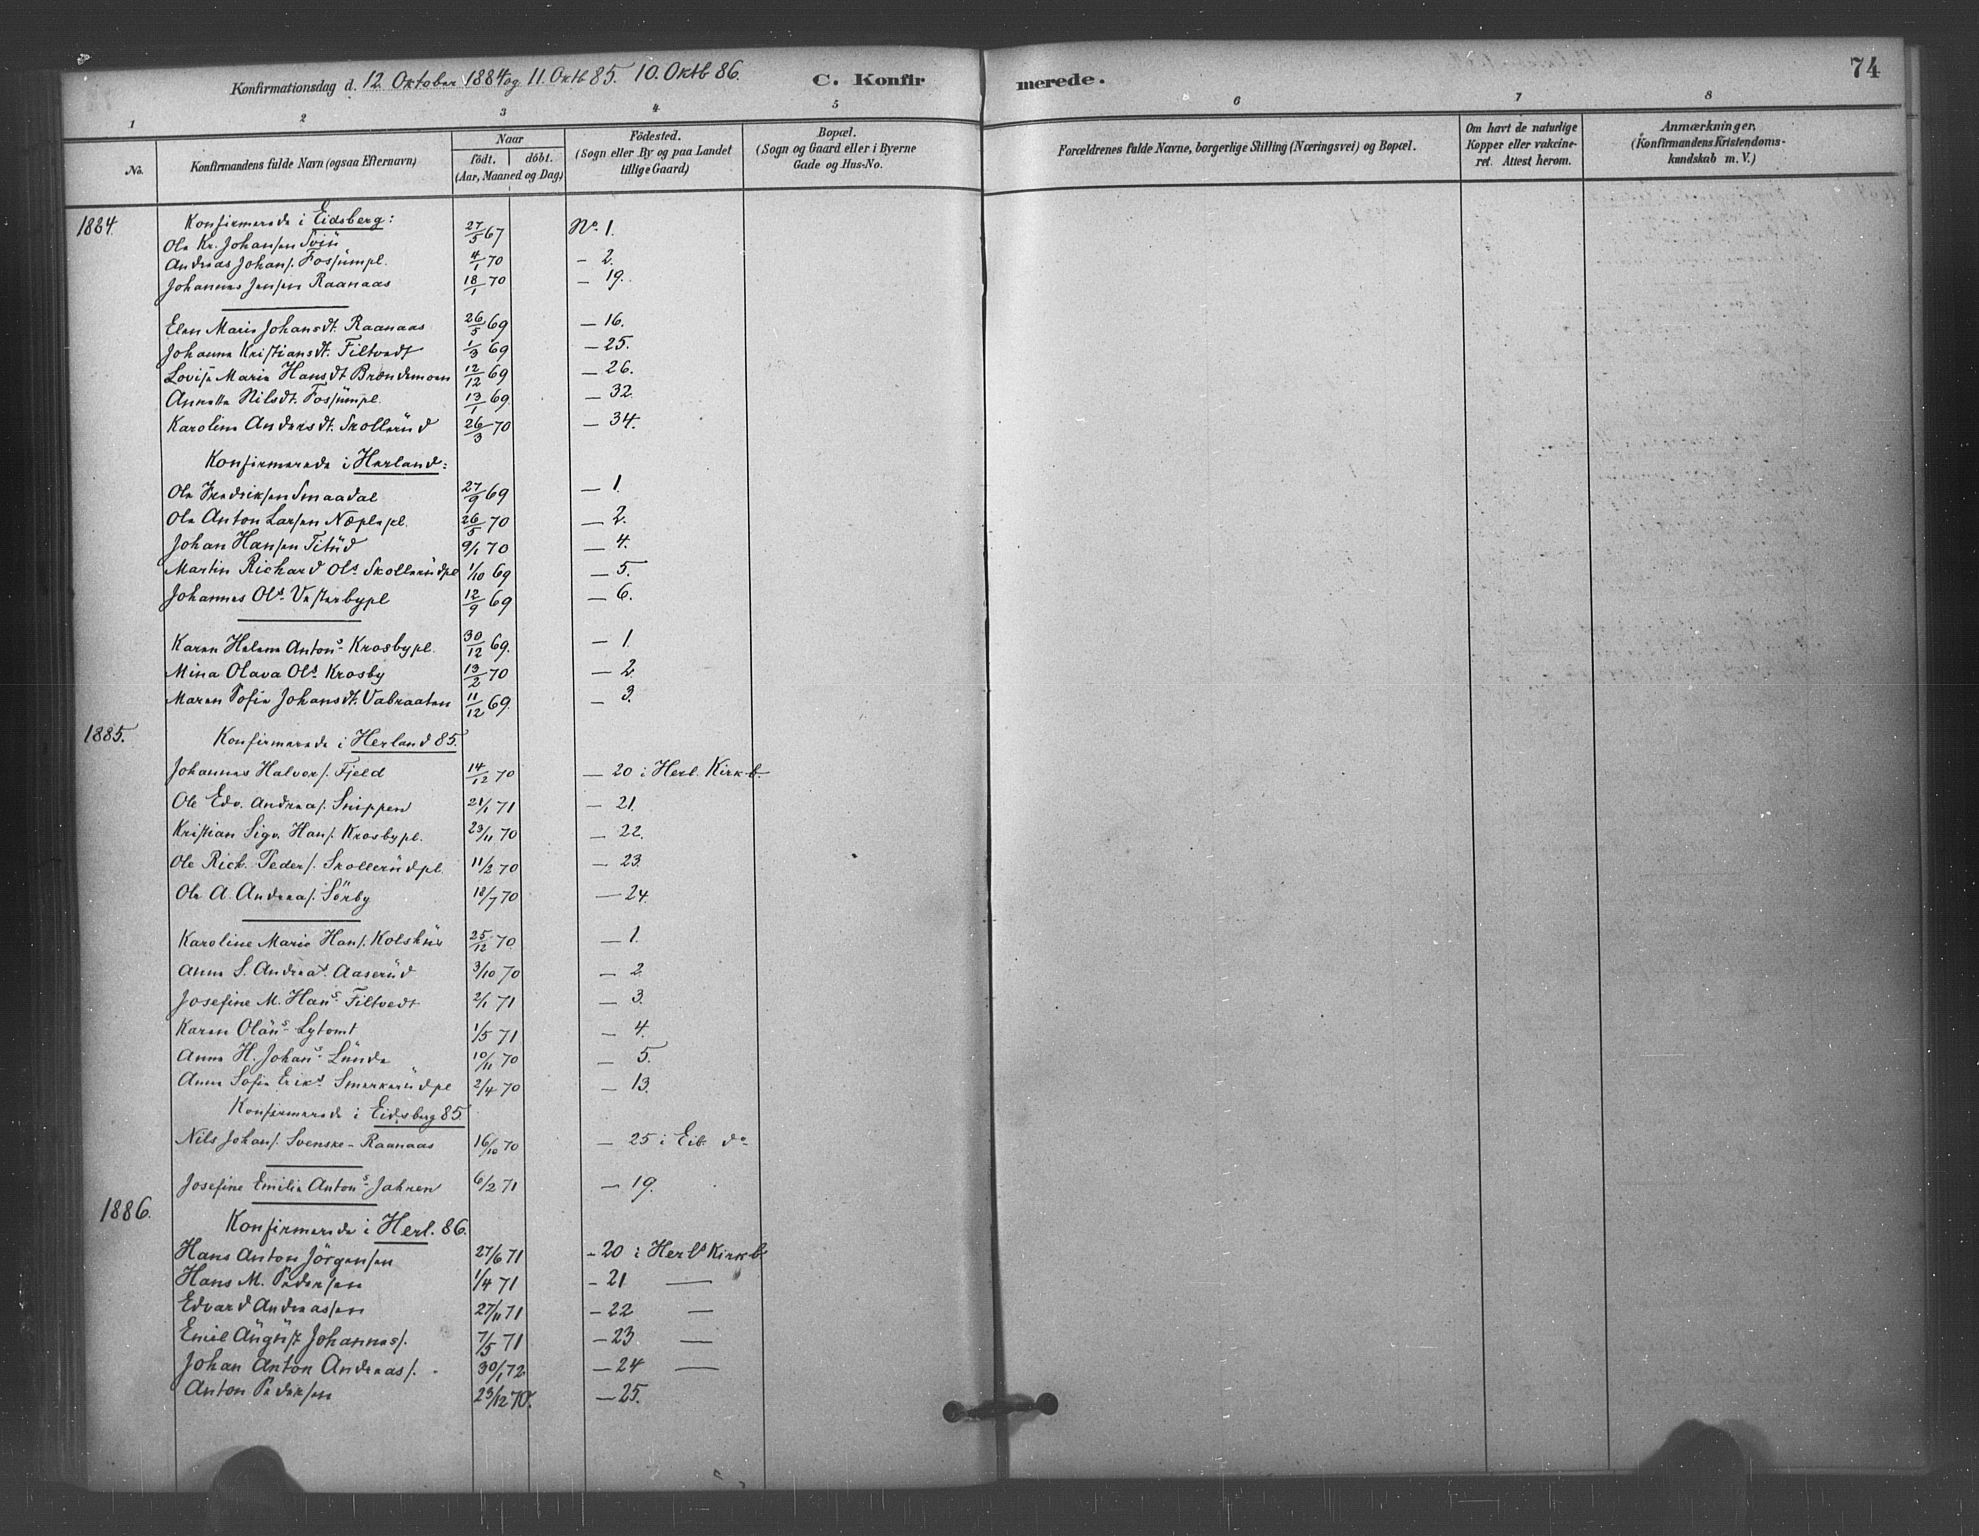 Konfirmationsdag d. 12 Oktober 1884 og 11. Oktb 85. 10. Oktb 86. C. Konfirmerede. 74
1 2 3 4 5 6 7 8
No.
Konfirmandens fulde Navn (ogsaa Efternavn)
Naar
født. døbt.
(Aar, Maaned og Dag)
Fødested.
(Sogn eller By og paa Landet
tillige Gaard)
Bopæl.
(Sogn og Gaard eller i Byerne
Gade og Hus-No.
Forældrenes fulde Navne, borgerlige Stilling (Næringsvei) og Bopæl.
Om havt de naturlige
Kopper eller vakcine-
ret. Attest herom.
Anmærkninger,
(Konfirmandens Kristendoms-
kundskab m. V.)
1884. Konfirmerede i Eidsberg:
Ole Kr. Johansen 27/5 67 No. 1.
Andreas Johans. Fossümpl. 4/1 70 - 2.
Johannes Jensen Raanaas 18/1 70 - 19.
Elen Marie Johansdt. Raanaas 26/5 69 - 16.
Johanne Kristiansdt. Filtvedt 1/3 69 - 25.
Lovise Marie Hansdt Brændemoen 12/12 69 - 26.
Annette Nilsdt. Fossümpl. 13/1 69 - 32
Karoline Andersdt. Skollerüd 26/3 70 - 34.
Konfirmerede i Herland:
Ole Fredriksen Smaadal 27/9 69 - 1.
Ole Anton Larsen Næplepl. 26/5 70 - 2.
Johan Hansen Titüd 9/1 70 - 4.
Martin Richard Ols. Skollerüdpl 1/10 69 - 5.
Johannes Ols. Vesterbypl 12/9 69 - 6.
Karen Helene Antons. Krosbypl. 30/12 69. - 1.
Mina Olava Ols. Krosby 13/2 70 - 2
Maren Sofie Johansdt. Vabraaten 11/12 69. - 3.
1885. Konfirmerede i Herland 85.
Johannes Halvors. Fjeld 14/12 70 - 20 i Herl. Kirkb.
Ole Edv. Andreas. Snippen 21/1 71 - 21.
Kristian Sigv. Hans. Krosbypl. 23/11 70 - 22.
Ole Rich. Peders. Skollerüdpl. 11/2 70 - 23.
Ole A. Andreas. Sörby 18/7 70 - 24.
Karoline Marie Hans. Kolshüs 25/12 70 - 1.
Anne S. Andreas. Aaserüd 3/10 70 - 2
Josefine M. Hans. Filtvedt 2/1 71 - 3.
Karen Olaüs. Lytomt 1/5 71 - 4.
Anne H. Johans. Lünde 10/11 70 - 5.
Anne Sofie Eriks. Smerkerüdpl 2/4 70 - 13.
Konfirmerede i Eidsberg 85.
Nils Johans. Svenske-Raanaas 16/10 70 - 25 i Eib. do
Josefine Emilie Antons. Jahren 6/2 71 - 19.
1886. Konfirmerede i Herl. 86.
Hans Anton Jörgensen 27/6 71 - 20 i Herls Kirkb.
Hans M. Pedersen 1/4 71 - 21 —
Edvard Andreassen 27/11 71 - 22 —
Emil Aügüst Johannes. 7/5 71 - 23 —
Johan Anton Andreas. 30/1 72 - 24 —
Anton Pedersen 23/12 70. - 25.